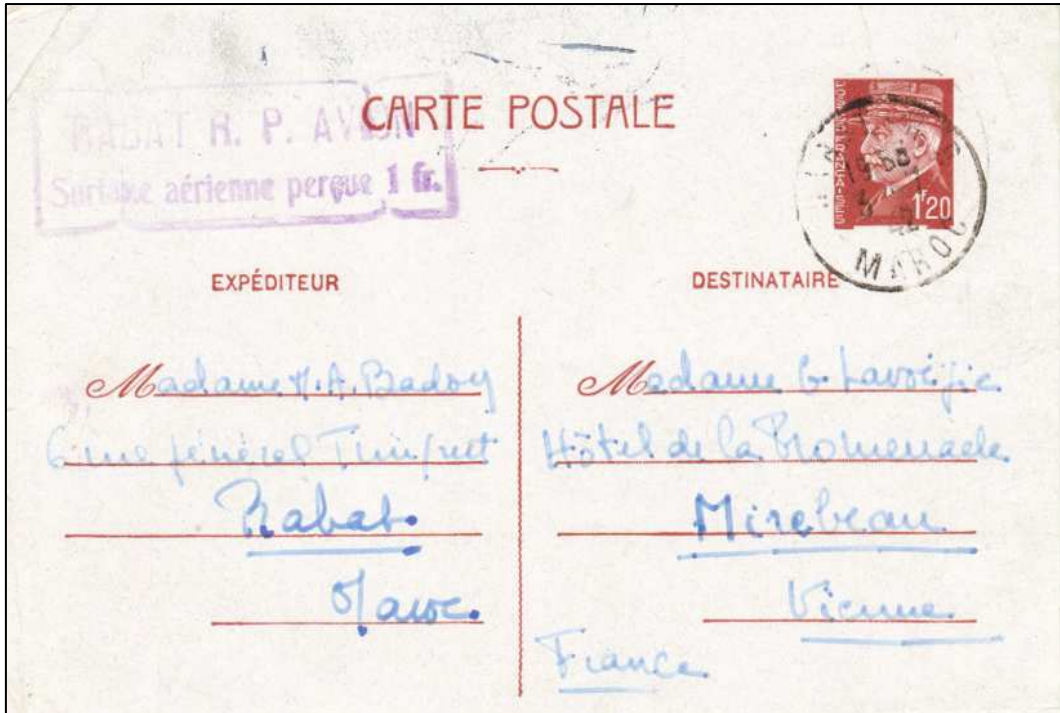 RABAT R. P. AVION
Surtaxe aérienne perçue 1 fr.
CARTE POSTALE
POSTES FRANÇAISES
1F20
42
MAROC
EXPÉDITEUR
Madame
6 rue général
Rabat.
Maroc.
DESTINATAIRE
Madame G. Lavoijie
Hôtel de la Promenade
Mirebeau
Vienne
France